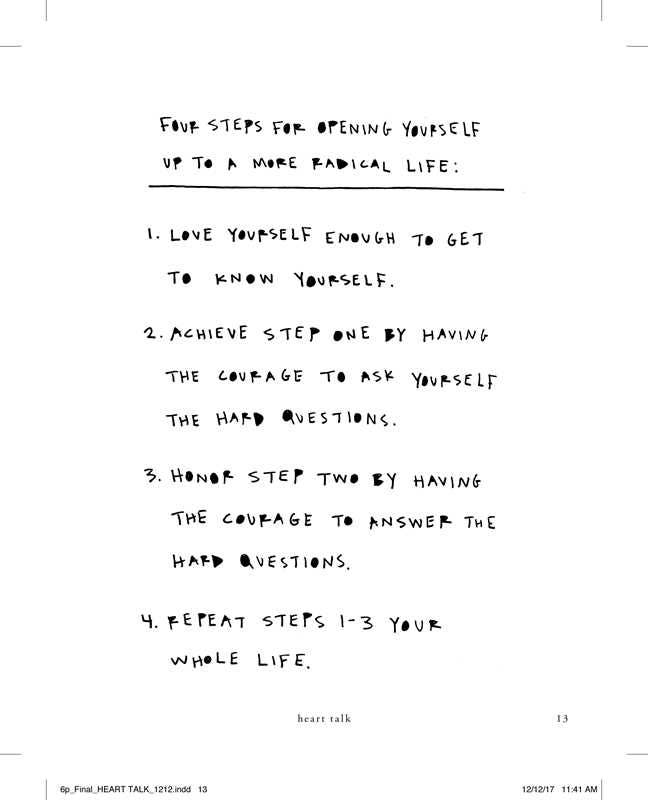 FOUR STEPS FOR OPENING YOURSELF
UP TO A MORE RADICAL LIFE:
1. LOVE YOURSELF ENOUGH TO GET
TO KNOW YOURSELF.
2. ACHIEVE STEP ONE BY HAVING
THE COURAGE TO ASK YOURSELF
THE HARD QUESTIONS.
3. HONOR STEP TWO BY HAVING
THE COURAGE TO ANSWER THE
HARD QUESTIONS.
4. REPEAT STEPS 1-3 YOUR
WHOLE LIFE.
heart talk 13
6p_Final_HEART TALK_1212.indd 13 12/12/17 11:41 AM